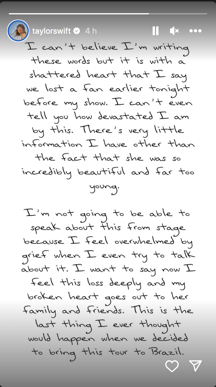 taylorswift 4 h
I can't believe I'm writing
these words but it is with a
shattered heart that I say
we lost a fan earlier tonight
before my show. I can't even
tell you how devastated I am
by this. There's very little
information I have other than
the fact that she was so
incredibly beautiful and far too
young.
I'm not going to be able to
speak about this from stage
because I feel overwhelmed by
grief when I even try to talk
about it. I want to say now I
feel this loss deeply and my
broken heart goes out to her
family and friends. This is the
last thing I ever thought
would happen when we decided
to bring this tour to Brazil.